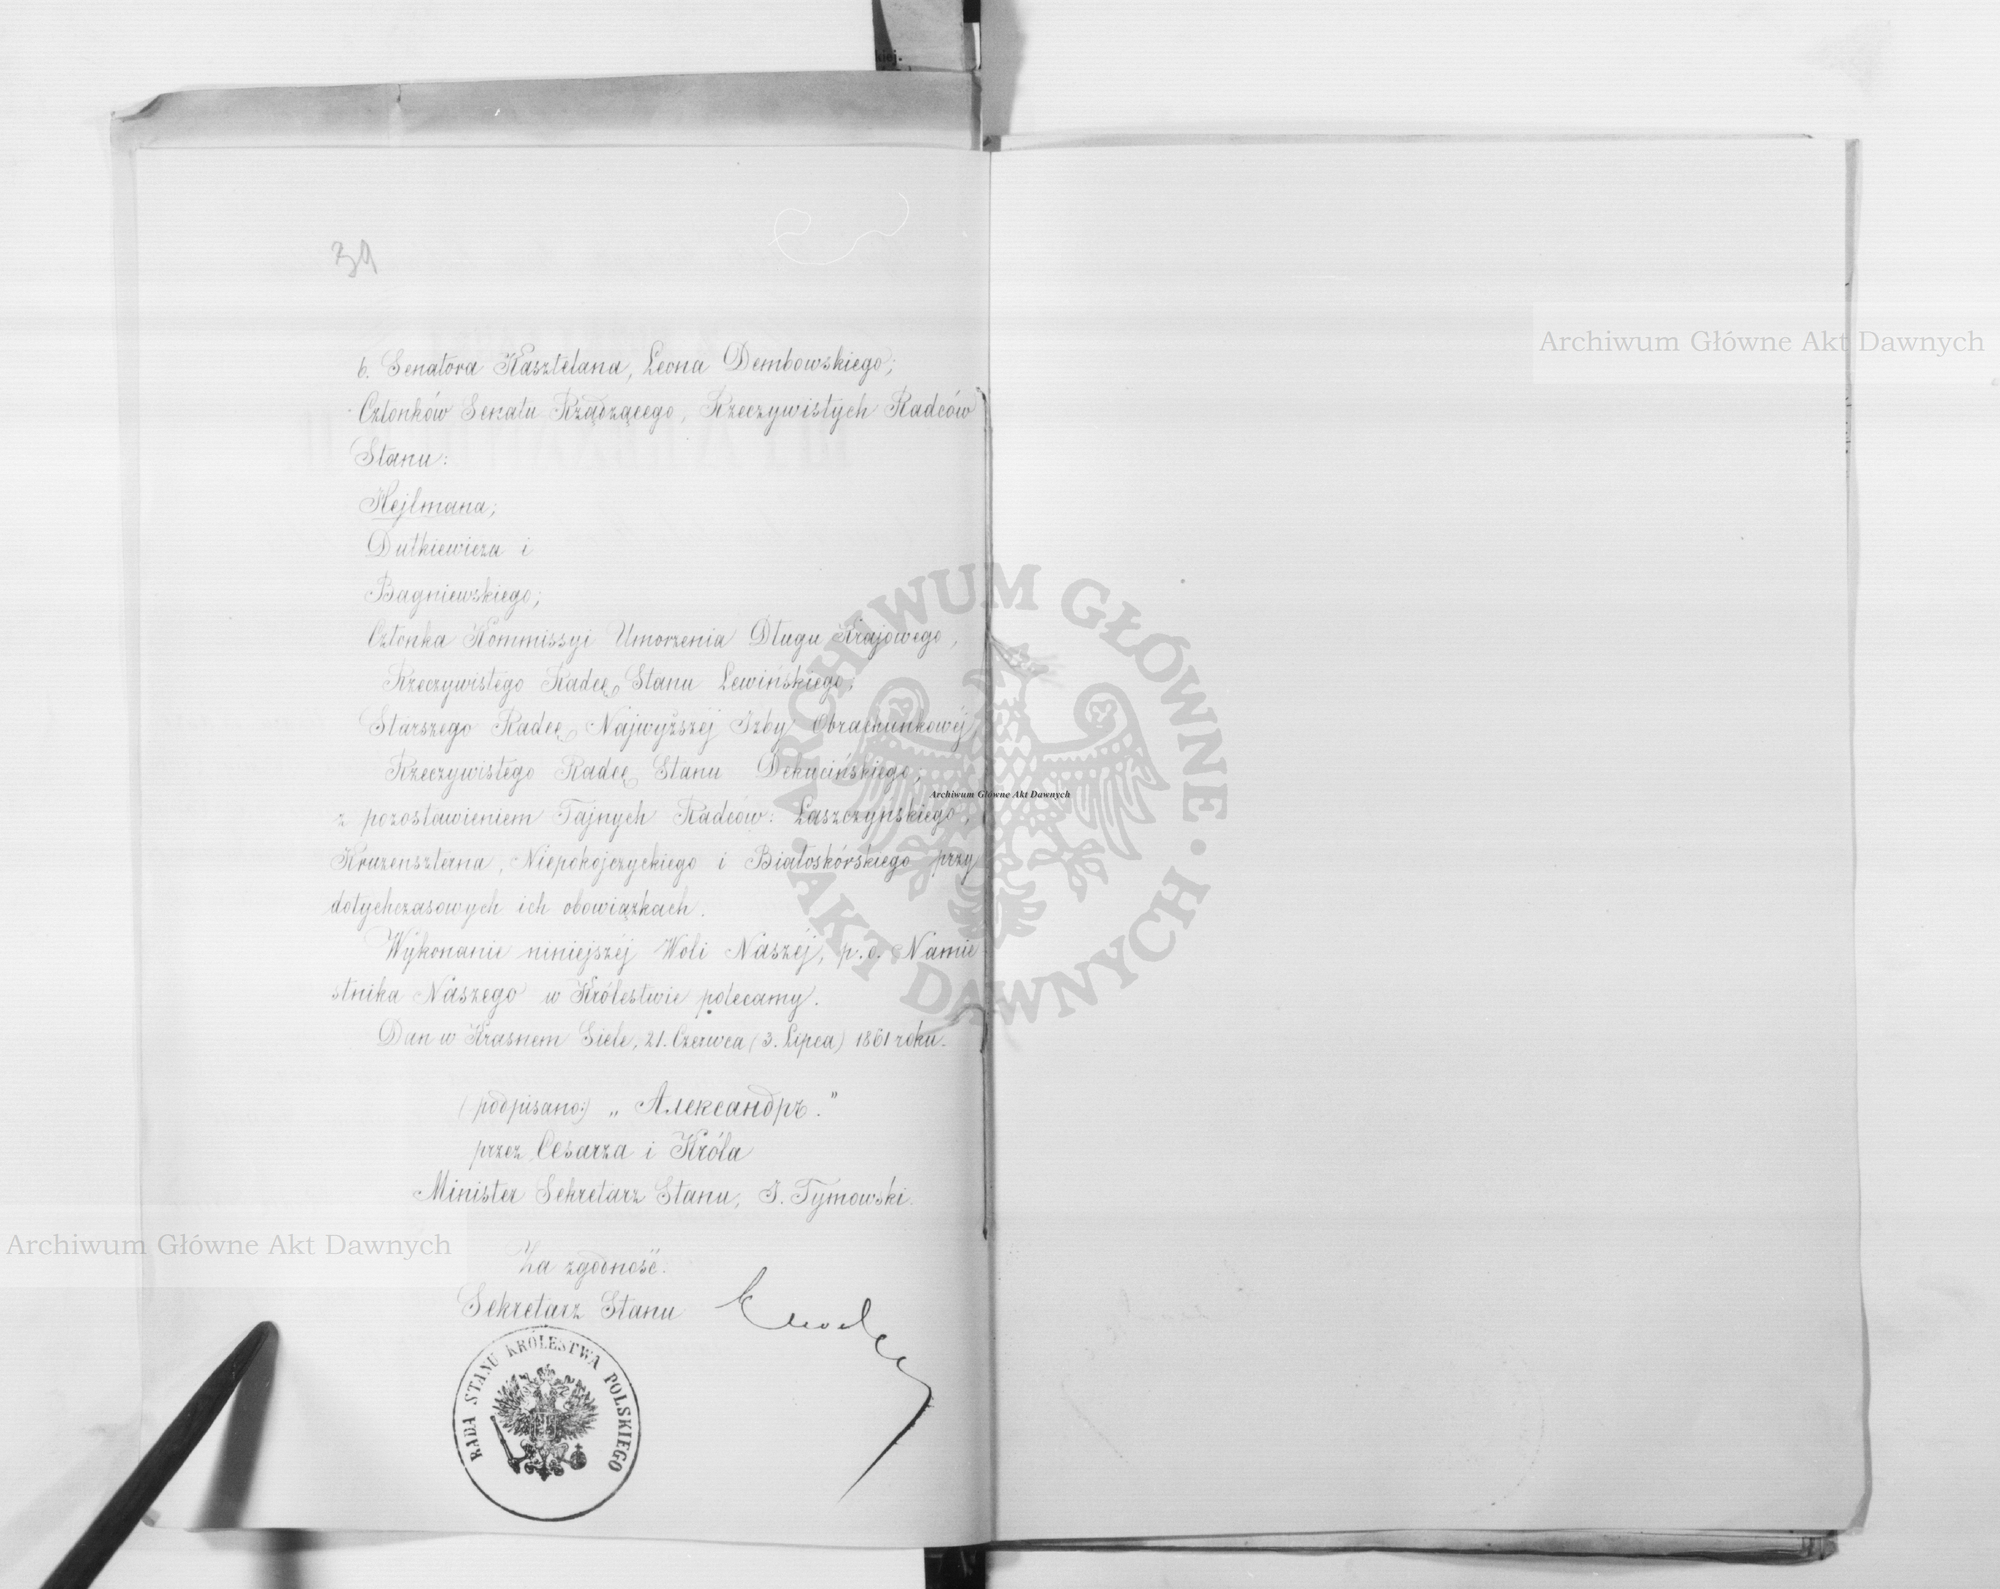 39
b. Senatora Kasztelana, Leona Dembowskiego;
Członków Senatu Rządzącego, Rzeczywistych Radców
Stanu:
Hejlmana;
Dutkiewicza i
Bagniewskiego;
Członka Kommissyi Umorzenia Długu Krajowego,
Rzeczywistego Radcę Stanu Lewińskiego;
Starszego Radcę Najwyższéj Izby Obrachunkowéj,
Rzeczywistego Radcę Stanu Dekucińskiego;
z pozostawieniem Tajnych Radców: Łaszczyńskiego,
Kruzenszterna, Niepokojczyckiego i Białoskórskiego przy
dotychczasowych ich obowiązkach.
Wykonanie niniejszéj Woli Naszéj, p. o. Namie
stnika Naszego w Królestwie polecamy.
Dan w Krasnem Siele, 21. Czerwca (3. Lipca) 1861 roku.
(podpisano:) „Александръ."
przez Cesarza i Króla
Minister Sekretarz Stanu, J. Tymowski.
Za zgodność:
Sekretarz Stanu
RADA STANU KRÓLESTWA POLSKIEGO
kiej.
Archiwum Główne Akt Dawnych
Archiwum Główne Akt Dawnych
Archiwum Główne Akt Dawnych
ARCHIWUM GŁÓWNE · AKT DAWNYCH ·